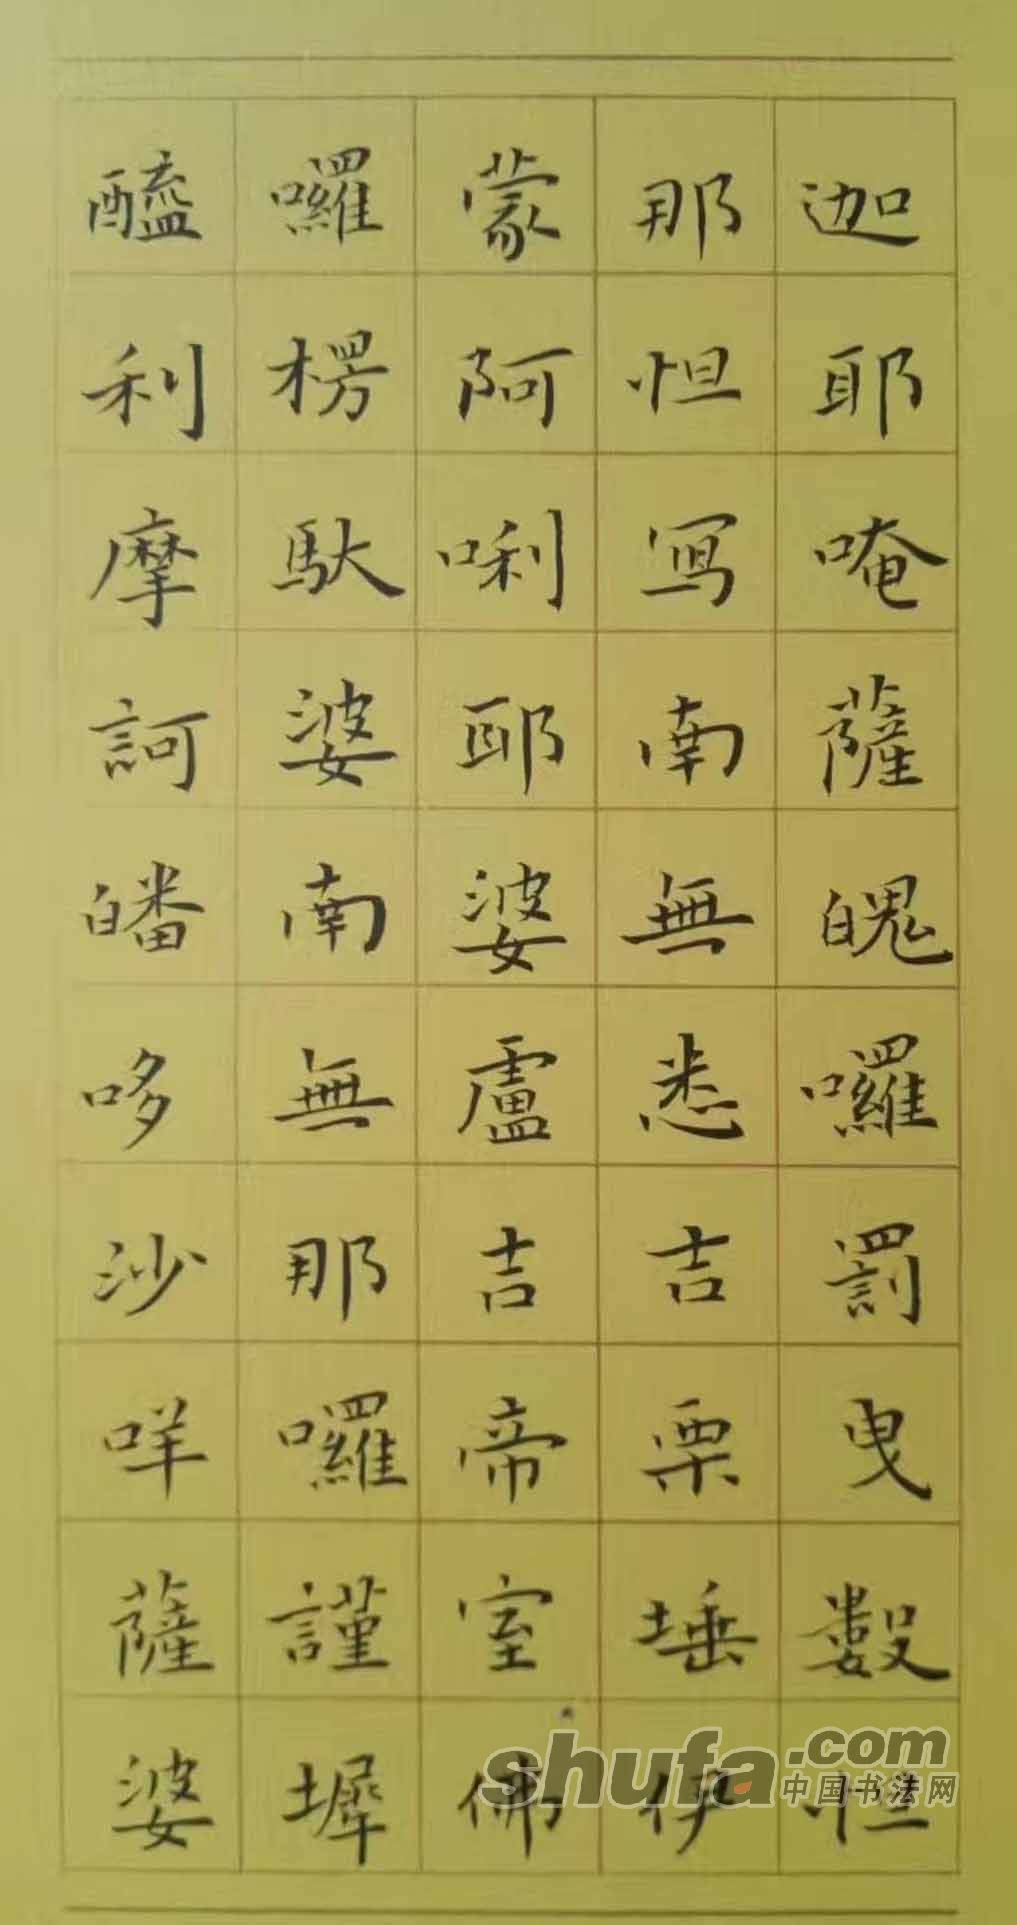 迦耶唵薩皤囉罰曳數怛
那怛寫南無悉吉栗埵伊
蒙阿唎耶婆盧吉帝室佛
囉楞馱婆南無那囉謹墀
醯利摩訶皤哆沙咩薩婆
shufa.com
中国书法网